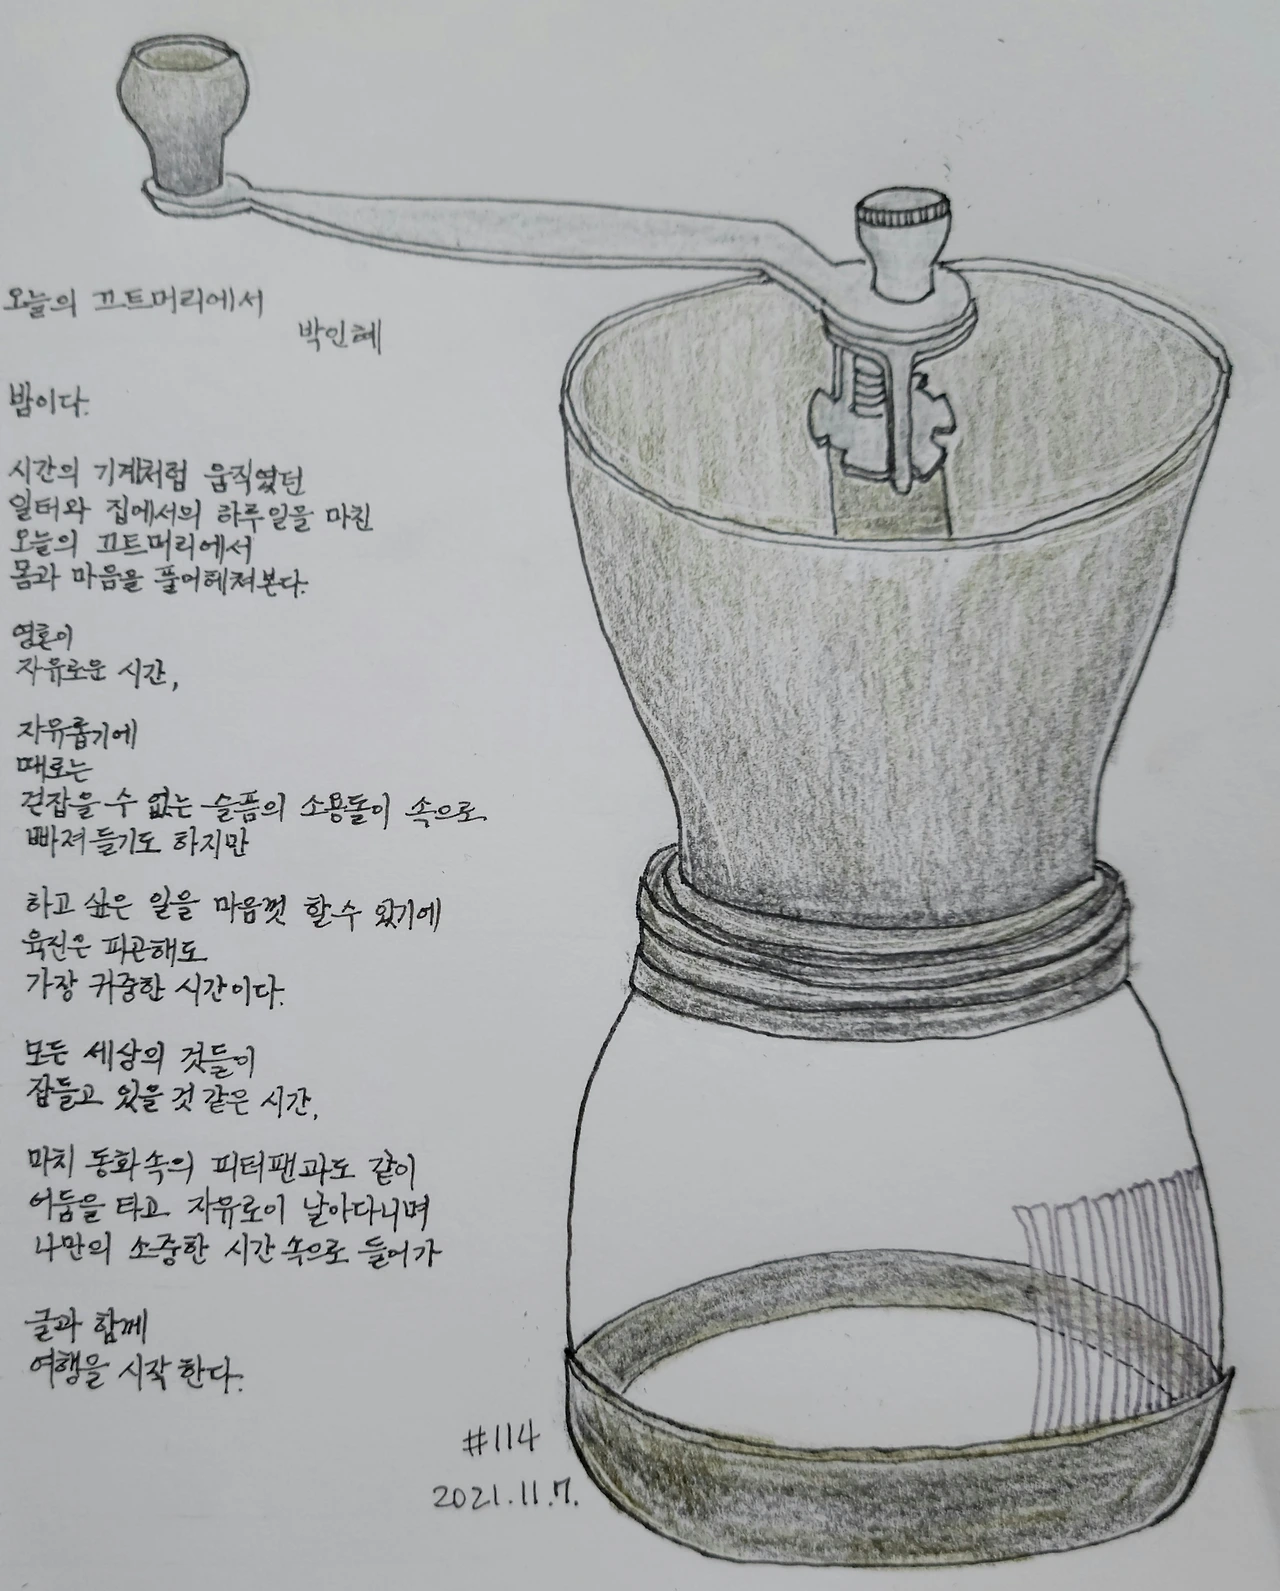 오늘의 끄트머리에서
박인혜
밤이다.
시간의 기계처럼 움직였던
일터와 집에서의 하루일을 마친
오늘의 끄트머리에서
몸과 마음을 풀어헤쳐본다.
영혼이
자유로운 시간,
자유롭기에
때로는
걷잡을 수 없는 슬픔의 소용돌이 속으로
빠져들기도 하지만
하고 싶은 일을 마음껏 할 수 있기에
육진은 피곤해도
가장 귀중한 시간이다.
모든 세상의 것들이
잠들고 있을 것 같은 시간,
마치 동화속의 피터팬과도 같이
어둠을 타고 자유로이 날아다니며
나만의 소중한 시간 속으로 들어가
글과 함께
여행을 시작한다.
#114
2021.11.7.